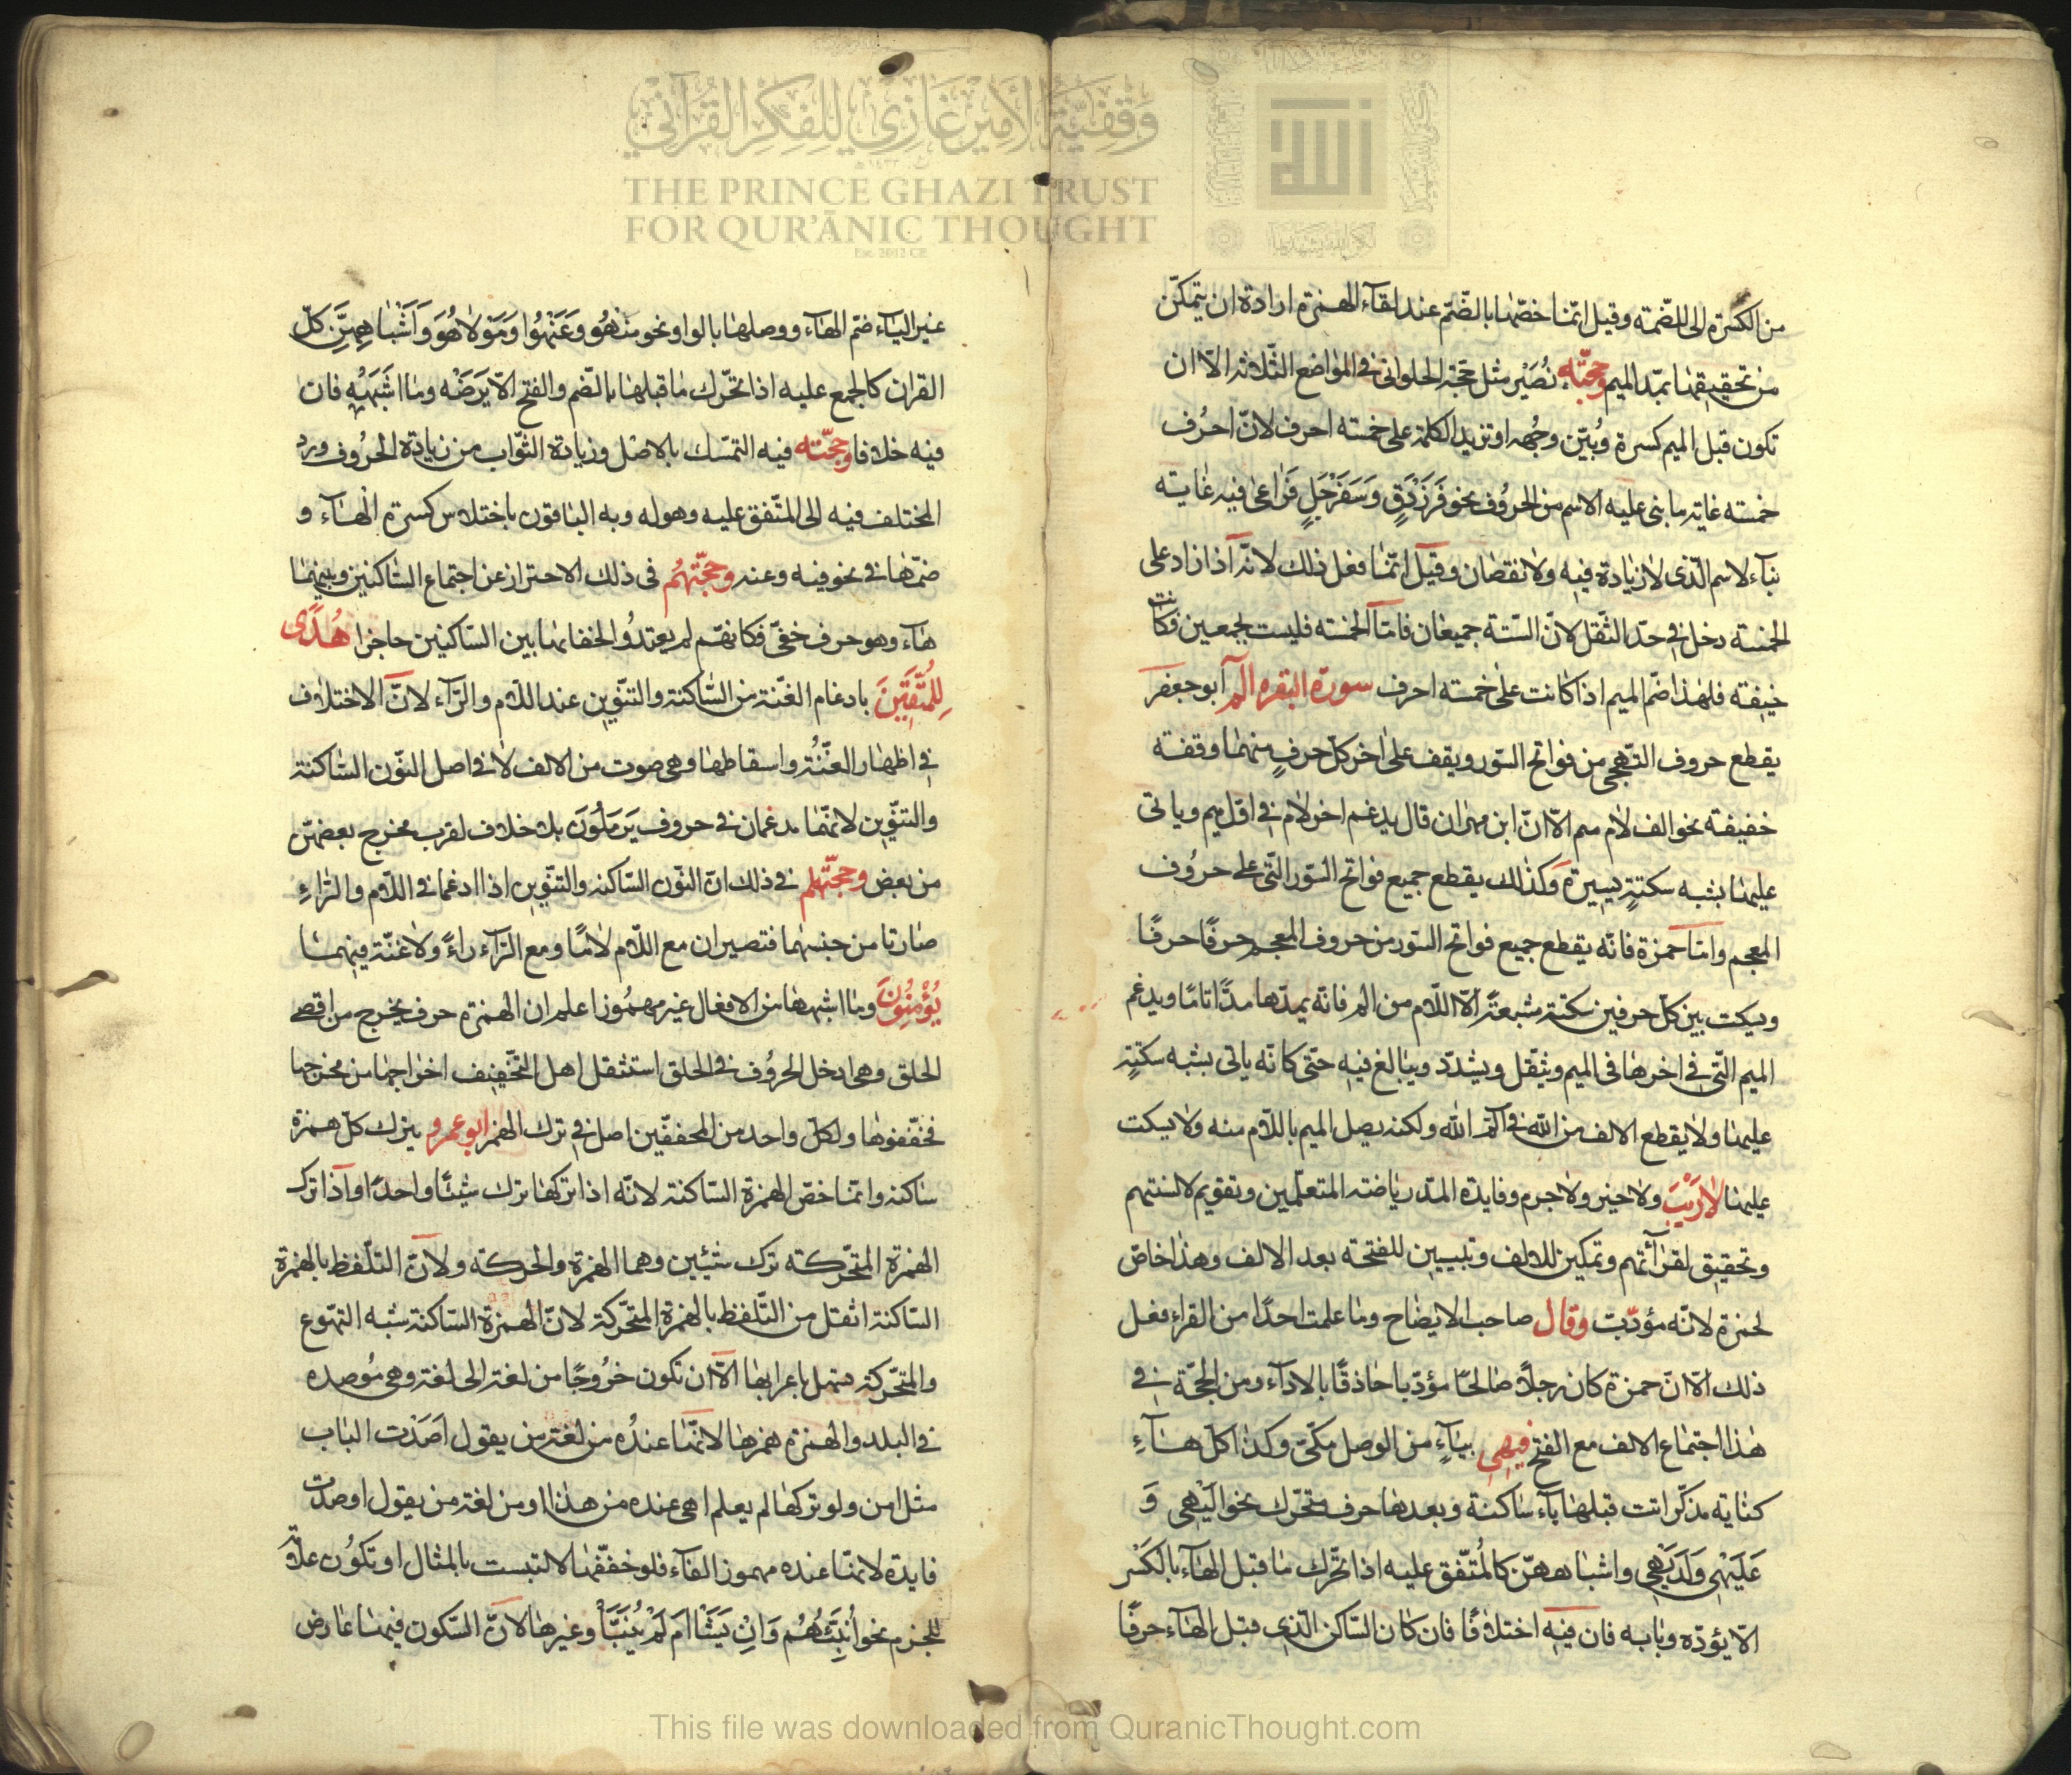 من الكسرة الى الضمة وقيل انما خصها بالضم عند لقاء الهمزة ارادة ان يتمكن
من تحقيقها بمد الميم وحجته نصير مثل حجة الحلوانى فى المواضع الثلاثة الا ان
تكون قبل الميم كسرة وبين وجهه او تزيد الكلمة على خمسة احرف لان احرف
خمسة غاية ما بنى عليه الاسم من الحروف نحو فرزدق وسفرجل فراعى فيه غاية
بناء لاسم الذى لا زيادة فيه ولا نقصان وقيل انما فعل ذلك لانه اذا زاد على
الخمسة دخل فى حد الثقل لان الستة جميعان فاما الخمسة فليست بجمعين فكانت
خفيفة فلهذا ضم الميم اذا كانت على خمسة احرف سورة البقره الم ابو جعفر
يقطع حروف التهجى من فواتح السور ويقف على اخر كل حرف منها وقفة
خفيفة نحو الف لام ميم الا ان ابن مهران قال يدغم اخر لام فى اول ميم وياتى
عليها بشبه سكتة يسيرة وكذلك يقطع جميع فواتح السور التى على حروف
المعجم واما حمزة فانه يقطع جميع فواتح السور من حروف المعجم حرفا حرفا
ويسكت بين كل حرفين سكتة مشبعة الا اللام من الم فانه يمدها مدا تاما ويدغم
الميم التى فى اخرها فى الميم ويثقل ويشدد ويبالغ فيه حتى كانه ياتى بشبه سكتة
عليها ولا يقطع الالف من الله فى الم الله ولكنه يصل الميم باللام منه ولا يسكت
عليها لا ريب ولا خير ولا جرم وفايدة المد رياضة المتعلمين وتقويم لالسنتهم
وتحقيق لقرائتهم وتمكين للالف وتبيين للفتحة بعد الالف وهذا خاص
لحمزة لانه مؤدب وقال صاحب الايضاح وما علمت احدا من القراء فعل
ذلك الا ان حمزة كان رجلا صالحا مؤدبا حاذقا بالاداء ومن الحجة فى
هذا اجتماع الالف مع الفتح فيهى بياء من الوصل مكى وكذا كل هاء
كناية مذكر اتت قبلها ياء ساكنة وبعدها حرف متحرك نحو اليهى و
عليهى ولديهى واشباههن كالمتفق عليه اذا تحرك ما قبل الهاء بالكسر
الا يؤده وبابه فان فيه اختلافا فان كان الساكن الذى قبل الهاء حرفا
غير الياء ضم الهاء ووصلها بالواو نحو منهو وعنهوا ومولاهو واشباههن كل
القران كالجمع عليه اذا تحرك ما قبلها بالضم والفتح الا يرضه وما اشبهه فان
فيه خلافا وحجته فيه التمسك بالاصل وزيادة الثواب من زيادة الحروف ورد
المختلف فيه الى المتفق عليه وهو له وبه الباقون باختلاس كسرة الهاء و
ضمها فى نحو فيه وعنه وحجتهم فى ذلك الاحتراز عن اجتماع الساكنين وبينهما
هاء وهو حرف خفى فكانهم لم يعتدوا لخفائها بين الساكنين حاجزا هدى
للمتقين بادغام الغنة من الساكنة والتنوين عند اللام والراء لان الاختلاف
فى اظهار الغنة واسقاطها وهى صوت من الالف لا فى اصل النون الساكنة
والتنوين لانهما مدغمان فى حروف يرملون بلا خلاف لقرب مخرج بعضهن
من بعض وحجتهم فى ذلك ان النون الساكنه والتنوين اذا ادغما فى اللام والراء
صارتا من جنسهما فتصيران مع اللام لاما ومع الراء راء ولا غنة فيهما
يؤمنون وما اشبهها من الافعال غير مهموز اعلم ان الهمزة حرف يخرج من اقصى
الحلق وهى ادخل الحروف فى الحلق استثقل اهل التخفيف اخراجها من مخرجها
فخففوها ولكل واحد من المخففين اصل فى ترك الهمز ابو عمرو يترك كل همزة
ساكنه وانما خص الهمزة الساكنة لانه اذا تركها ترك شيئا واحدا واذا ترك
الهمزة المتحركة ترك شيئين وهما الهمزة والحركة ولان التلفظ بالهمزة
الساكنة اثقل من التلفظ بالهمزة المتحركة لان الهمزة الساكنة شبه التهوع
والمتحركة بإعرابها الا ان تكون خروجا من لغة الى لغة وهى موصده
فى البلد والهمزة همزها لانها عنده من لغة من يقول اصدت الباب
مثل امن ولو تركها لم يعلم اهى عنده من هذا او من لغة من يقول اوصدت
فايدة لانها عنده مهموز الفاء فلو خففها لالتبست بالمثال او تكون علامة
للجزم نحو انبئهم وان يشا ام لم ينبأ وغيرها لان السكون فيها عارض
وقفية الأمير غازي للفكر القرآني
THE PRINCE GHAZI TRUST
FOR QUR'ĀNIC THOUGHT
Est. 2012 CE
This file was downloaded from QuranicThought.com